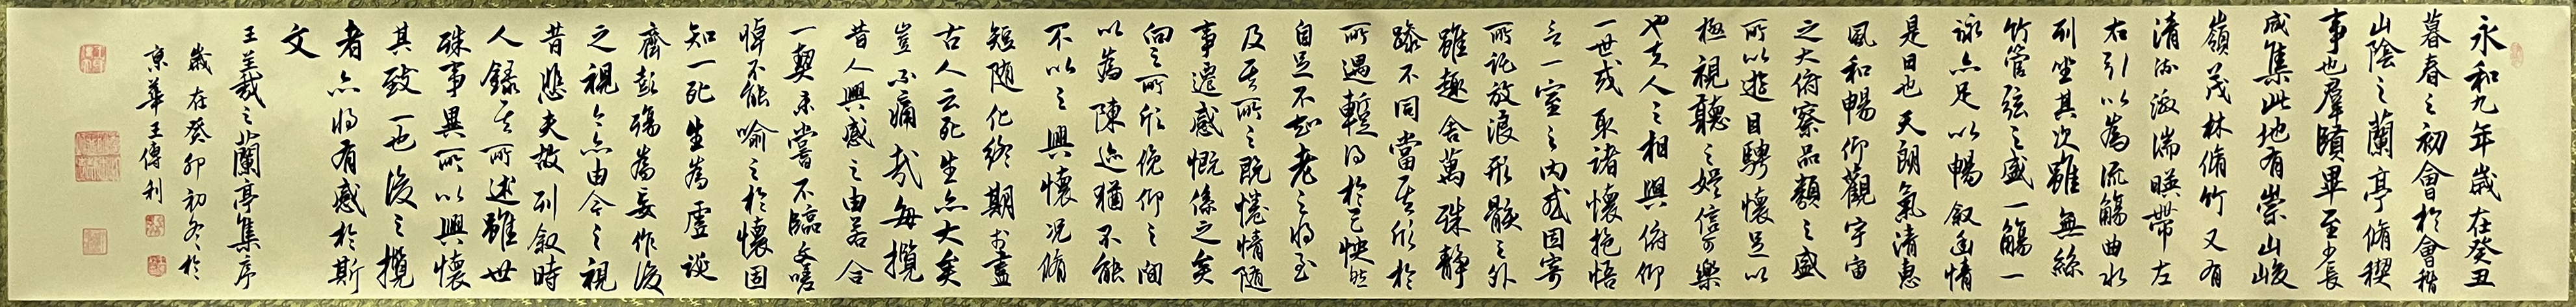 永和九年歲在癸丑
暮春之初會於會稽
山陰之蘭亭脩稧
事也羣賢畢至少長
咸集此地有崇山峻
嶺茂林脩竹又有
清流激湍暎帶左
右引以為流觴曲水
列坐其次雖無絲
竹管弦之盛一觴一
詠亦足以暢敘幽情
是日也天朗氣清惠
風和暢仰觀宇宙
之大俯察品類之盛
所以遊目騁懷足以
極視聽之娛信可樂
也夫人之相與俯仰
一世或取諸懷抱悟
言一室之內或因寄
所託放浪形骸之外
雖趣舍萬殊靜
躁不同當其欣於
所遇蹔得於己怏然
自足不知老之將至
及其所之既惓情隨
事遷感慨係之矣
向之所欣俛仰之間
以為陳迹猶不能
不以之興懷況脩
短隨化終期於盡
古人云死生亦大矣
豈不痛哉每攬
昔人興感之由若合
一契未嘗不臨文嗟
悼不能喻之於懷固
知一死生為虛誕
齊彭殤為妄作後
之視今亦由今之視
昔悲夫故列敘時
人錄其所述雖世
殊事異所以興懷
其致一也後之攬
者亦將有感於斯
文
王羲之蘭亭集序
歲在癸卯初冬於
京華王傳利